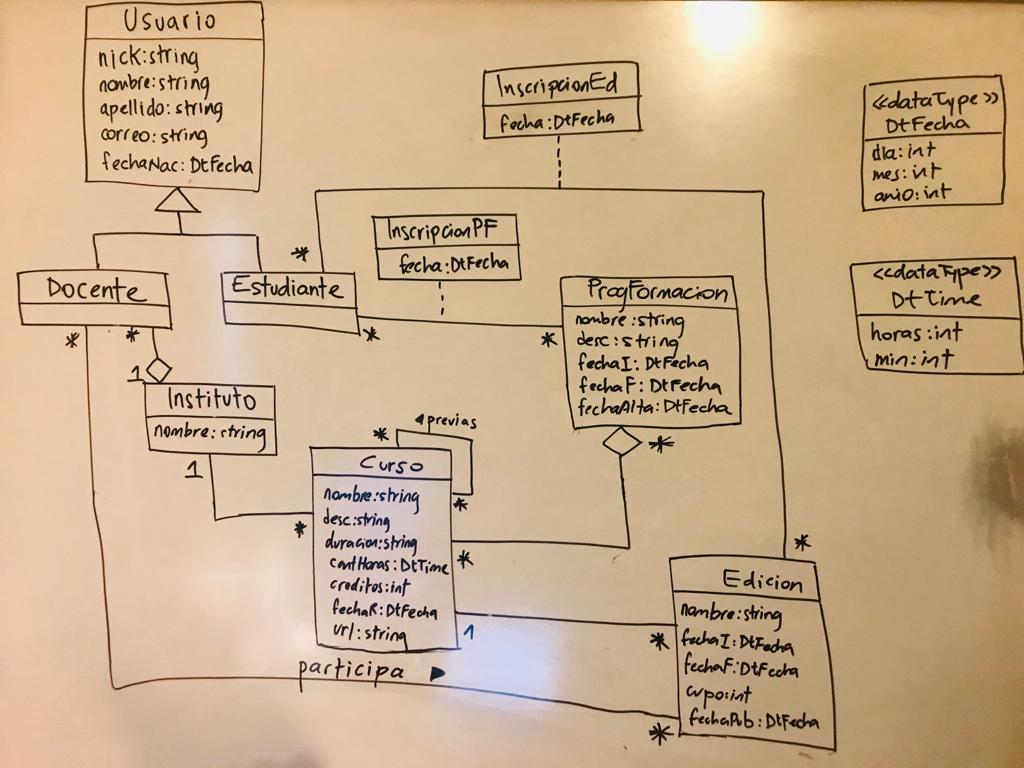 Usuario
nick:string
nombre:string
apellido:string
correo:string
fechaNac:DtFecha
InscripcionEd
fecha:DtFecha
<<dataType>>
DtFecha
dia:int
mes:int
anio:int
InscripcionPF
fecha:DtFecha
*
Docente
Estudiante
*
*
*
*
ProgFormacion
nombre:string
desc:string
fechaI:DtFecha
fechaF:DtFecha
fechaAlta:DtFecha
*
<<dataType>>
DtTime
horas:int
min:int
1
Instituto
nombre:string
1
previas
*
*
Curso
nombre:string
desc:string
duracion:string
cantHoras:DtTime
creditos:int
fechaR:DtFecha
url:string
*
*
1
*
Edicion
nombre:string
fechaI:DtFecha
fechaF:DtFecha
cupo:int
fechaPub:DtFecha
*
participa
*